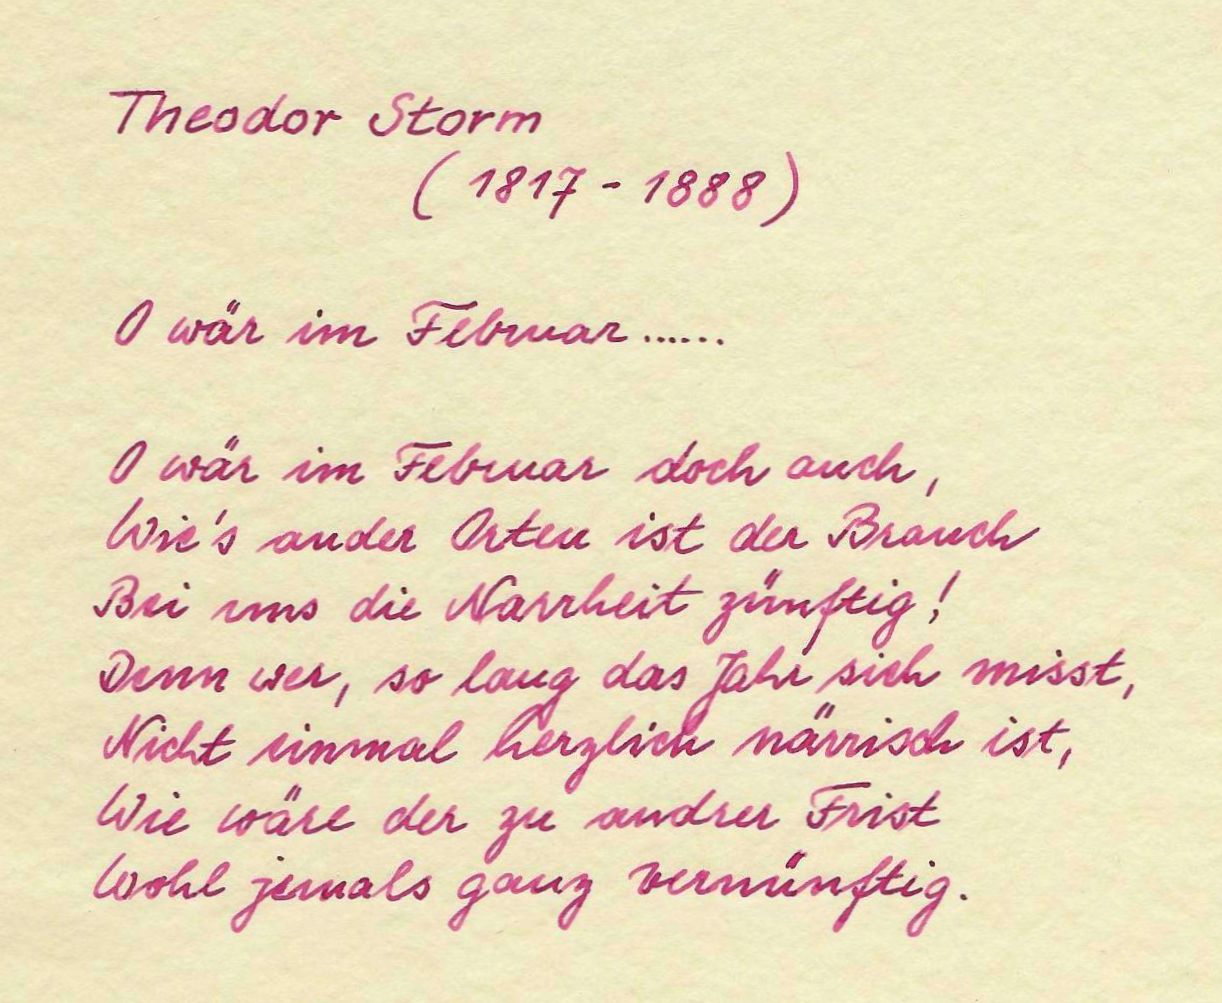 Theodor Storm
(1817 - 1888)
O wär im Februar ......
O wär im Februar doch auch,
Wie's ander Orten ist der Brauch
Bei uns die Narrheit zünftig!
Denn wer, so lang das Jahr sich misst,
Nicht einmal herzlich närrisch ist,
Wie wäre der zu andrer Frist
Wohl jemals ganz vernünftig.